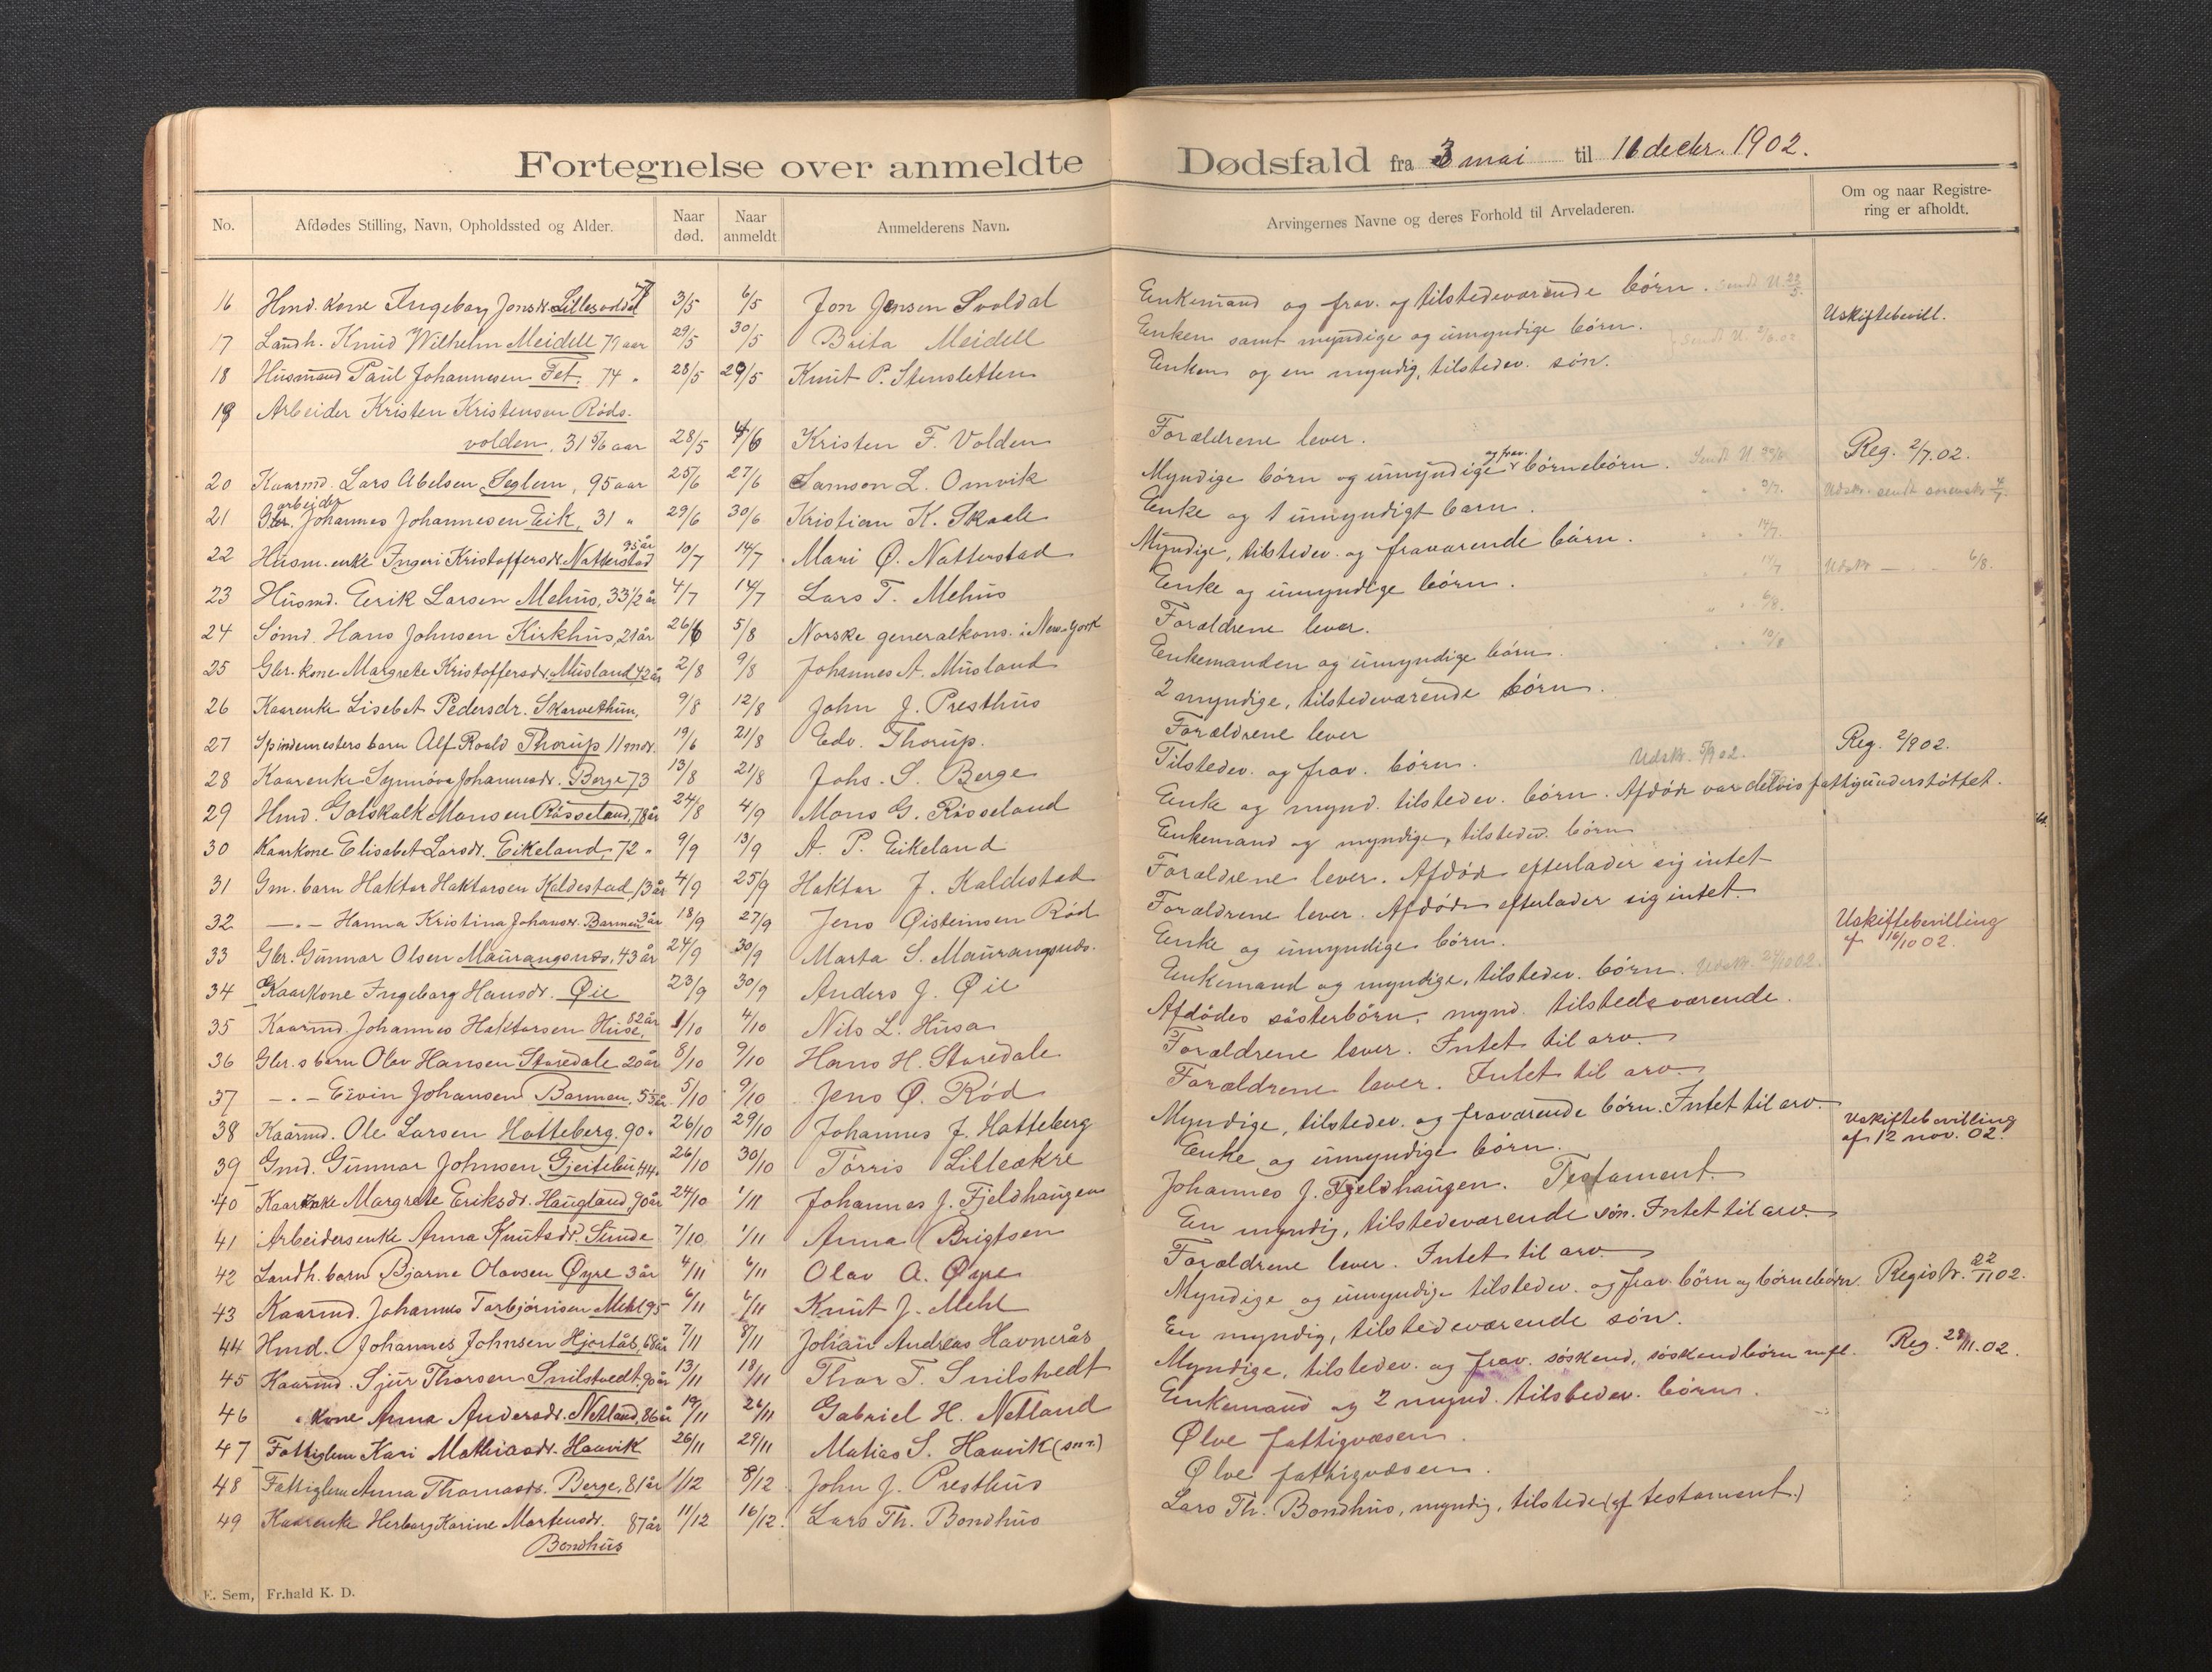 Fortegnelse over anmeldte Dødsfald fra 3 mai til 16 decbr. 1902.
No. Afdødes Stilling, Navn, Opholdssted og Alder. Naar død. Naar anmeldt Anmelderens Navn. Arvingernes Navne og deres Forhold til Arveladeren. Om og naar Registrering er afholdt.
16 Hmd. kone Ingeborg Jonsdr. Lillesvoldal 3/5 6/5 Jon Jensen Svoldal Enkemand og frav. og tilstedeværende børn. Sendt U. 22/5. Uskiftebevill.
17 Landh. Knud Wilhelm Meidell 71 aar 29/5 30/5 Brita Meidell Enken samt myndige og umyndige børn.
18 Husmand Paul Johannesen Fet. 74 " 28/5 29/5 Knut P. Stensletten Enken og en myndig, tilstedev. søn.
19 Arbeider Kristen Kristensen Røds-
volden, 31 5/6 aar 28/5 4/6 Kristen F. Volden Forældrene lever.
20 Kaarmd. Lars Abelsen Seglem, 95 aar 25/6 27/6 Samson L. Omvik Myndige børn og umyndige og frav. børnebørn. Sendt U. Reg. 2/7.02.
21 Gbr. arbeider Johannes Johannesen Eik, 31 " 29/6 30/6 Kristian K. Skaale Enke og 1 umyndigt barn.
22 Husm. enke Ingeri Kristoffersdr. Natterstad 95 år 10/7 14/7 Mari Ø. Natterstad Myndige, tilstedev. og fraværende børn. " " 14/7.
23 Husmd. Eerik Larsen Mehus, 33 1/2 år 4/7 14/7 Lars T. Mehus Enke og umyndige børn. " " 14/7 Udskr — " 6/8.
24 Sømd. Hans Johnsen Kirkhus, 21 år 26/6 5/8 Norske generalkons. i New-York Forældrene lever. " " 6/8.
25 Gbr. kone Margrete Kristoffersdr. Musland, 42 år 2/8 9/8 Johannes A. Musland Enkemanden og umyndige børn. " " 10/8
26 Kaarenke Lisebet Pedersdr. Skarvethun, 9/8 12/8 John J. Presthus 2 myndige, tilstedeværende børn.
27 Spindemesters barn Alf Roald Thorup 11 mdr. 19/6 21/8 Edv. Thorup. Forældrene lever
28 Kaarenke Synnøve Johannesdr. Berge 73 13/8 21/8 Johs. S. Berge Tilstedev. og frav. børn. Udskr. 5/9 02. Reg. 2/9 02.
29 Hmd. Gotskalk Monsen Røsseland, 78 år 24/8 4/9 Mons G. Røsseland Enke og mynd. tilstedev. børn. Afdøde var delvis fattigunderstøttet.
30 Kaarkone Elisabet Larsdr. Eikeland, 72 " 9/9 13/9 A. P. Eikeland Enkemand og myndige, tilstedev. børn
31 Gm. barn Haktor Haktorsen Kaldestad, 13 år 4/9 25/9 Haktor J. Kaldestad Forældrene lever. Afdøde efterlader sig intet
32 — " — Hanna Kristina Johansdr. Barmen 3 år 18/9 27/9 Jens Øisteinsen Rød Forældrene lever. Afdøde efterlader sig intet.
33 Gbr. Gunnar Olsen Maurangsnæs, 43 år 24/9 30/9 Marta S. Maurangsnæs. Enke og umyndige børn. Uskiftebevilling af 16/10 02.
34 Kaarkone Ingeborg Hansdr. Øie 23/9 30/9 Anders J. Øie Enkemand og myndige, tilstedev. børn.
35 Kaarmd. Johannes Haktorsen Huse, 82 år 1/10 4/10 Nils L. Husa Afdødes søsterbørn, mynd. tilstedeværende.
36 Gbr. s barn Olav Hansen Staredale 20 år 8/10 9/10 Hans H. Staredale Forældrene lever. Intet til arv.
37 — " — Ervin Johansen Barmen, 5 1/2 år 5/10 9/10 Jens Ø. Rød Forældrene lever. Intet til arv.
38 Kaarmd. Ole Larsen Hatteberg. 90 " 26/10 29/10 Johannes J. Hatteberg Myndige, tilstedev. og fraværende børn. Intet til arv.
39 Gmd. Gunnar Johnsen Gjerstebu, 44 " 26/10 30/10 Torris Lilleækre Enke og umyndige børn. Uskiftebevilling af 12 nov. 02.
40 Kaarenke Margrete Eriksdr. Haugland, 90 år 24/10 1/11 Johannes J. Fjeldhaugen Johannes J. Fjeldhaugen. Testament.
41 Arbeidersenke Anna Knutsdr. Sunde 7/10 1/11 Anna Brigtsen En myndig, tilstedeværende søn. Intet til arv.
42 Landh. barn Bjarne Olavsen Øyre 3 år 4/11 6/11 Olav A. Øyre Forældrene lever. Intet til arv.
43 Kaarmd. Johannes Torbjørnsen Mehl 95 6/11 6/11 Knut J. Mehl Myndige og umyndige tilstedev. og frav. børn og børnebørn. Registr. 22/11 02.
44 Hmd. Johannes Johnsen Hjortås, 68 år 7/11 8/11 Johan Andreas Havnerås En myndig, tilstedeværende søn.
45 Kaarmd. Sjur Thorsen Snilstvedt, 90 år 13/11 18/11 Thor T. Snilstvedt Myndige, tilstedev. og frav. søskend, søskendbørn m.fl. Reg. 28/11.02.
46 " kone Anna Andersdr. Netland, 86 år 19/11 26/11 Gabriel H. Netland Enkemand og 2 mynd. tilstedev. børn.
47 Fattiglem Kari Mathiasdr. Haavik 26/11 29/11 Matias S. Haavik (snr.) Ølve fattigvæsen.
48 Fattiglem Anna Thomasdr. Berge, 81 år 1/12 8/12 John J. Presthus Ølve fattigvæsen.
49 Kaarenke Herborg Karine Mortensdr. 87 år 11/12 16/12. Lars Th. Bondhus Lars Th. Bondhus, myndig, tilstede (af testament.)
Bondhus
E. Sem, Fr.hald K. D.